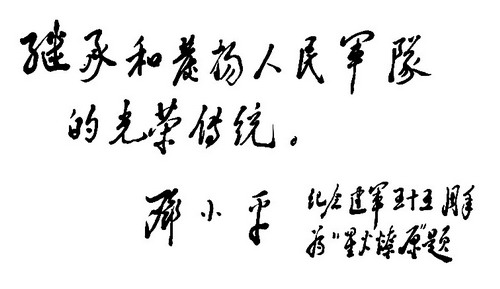 继承和发扬人民军队
的光荣传统。
邓小平
纪念建军五十五周年
为“星火燎原”题